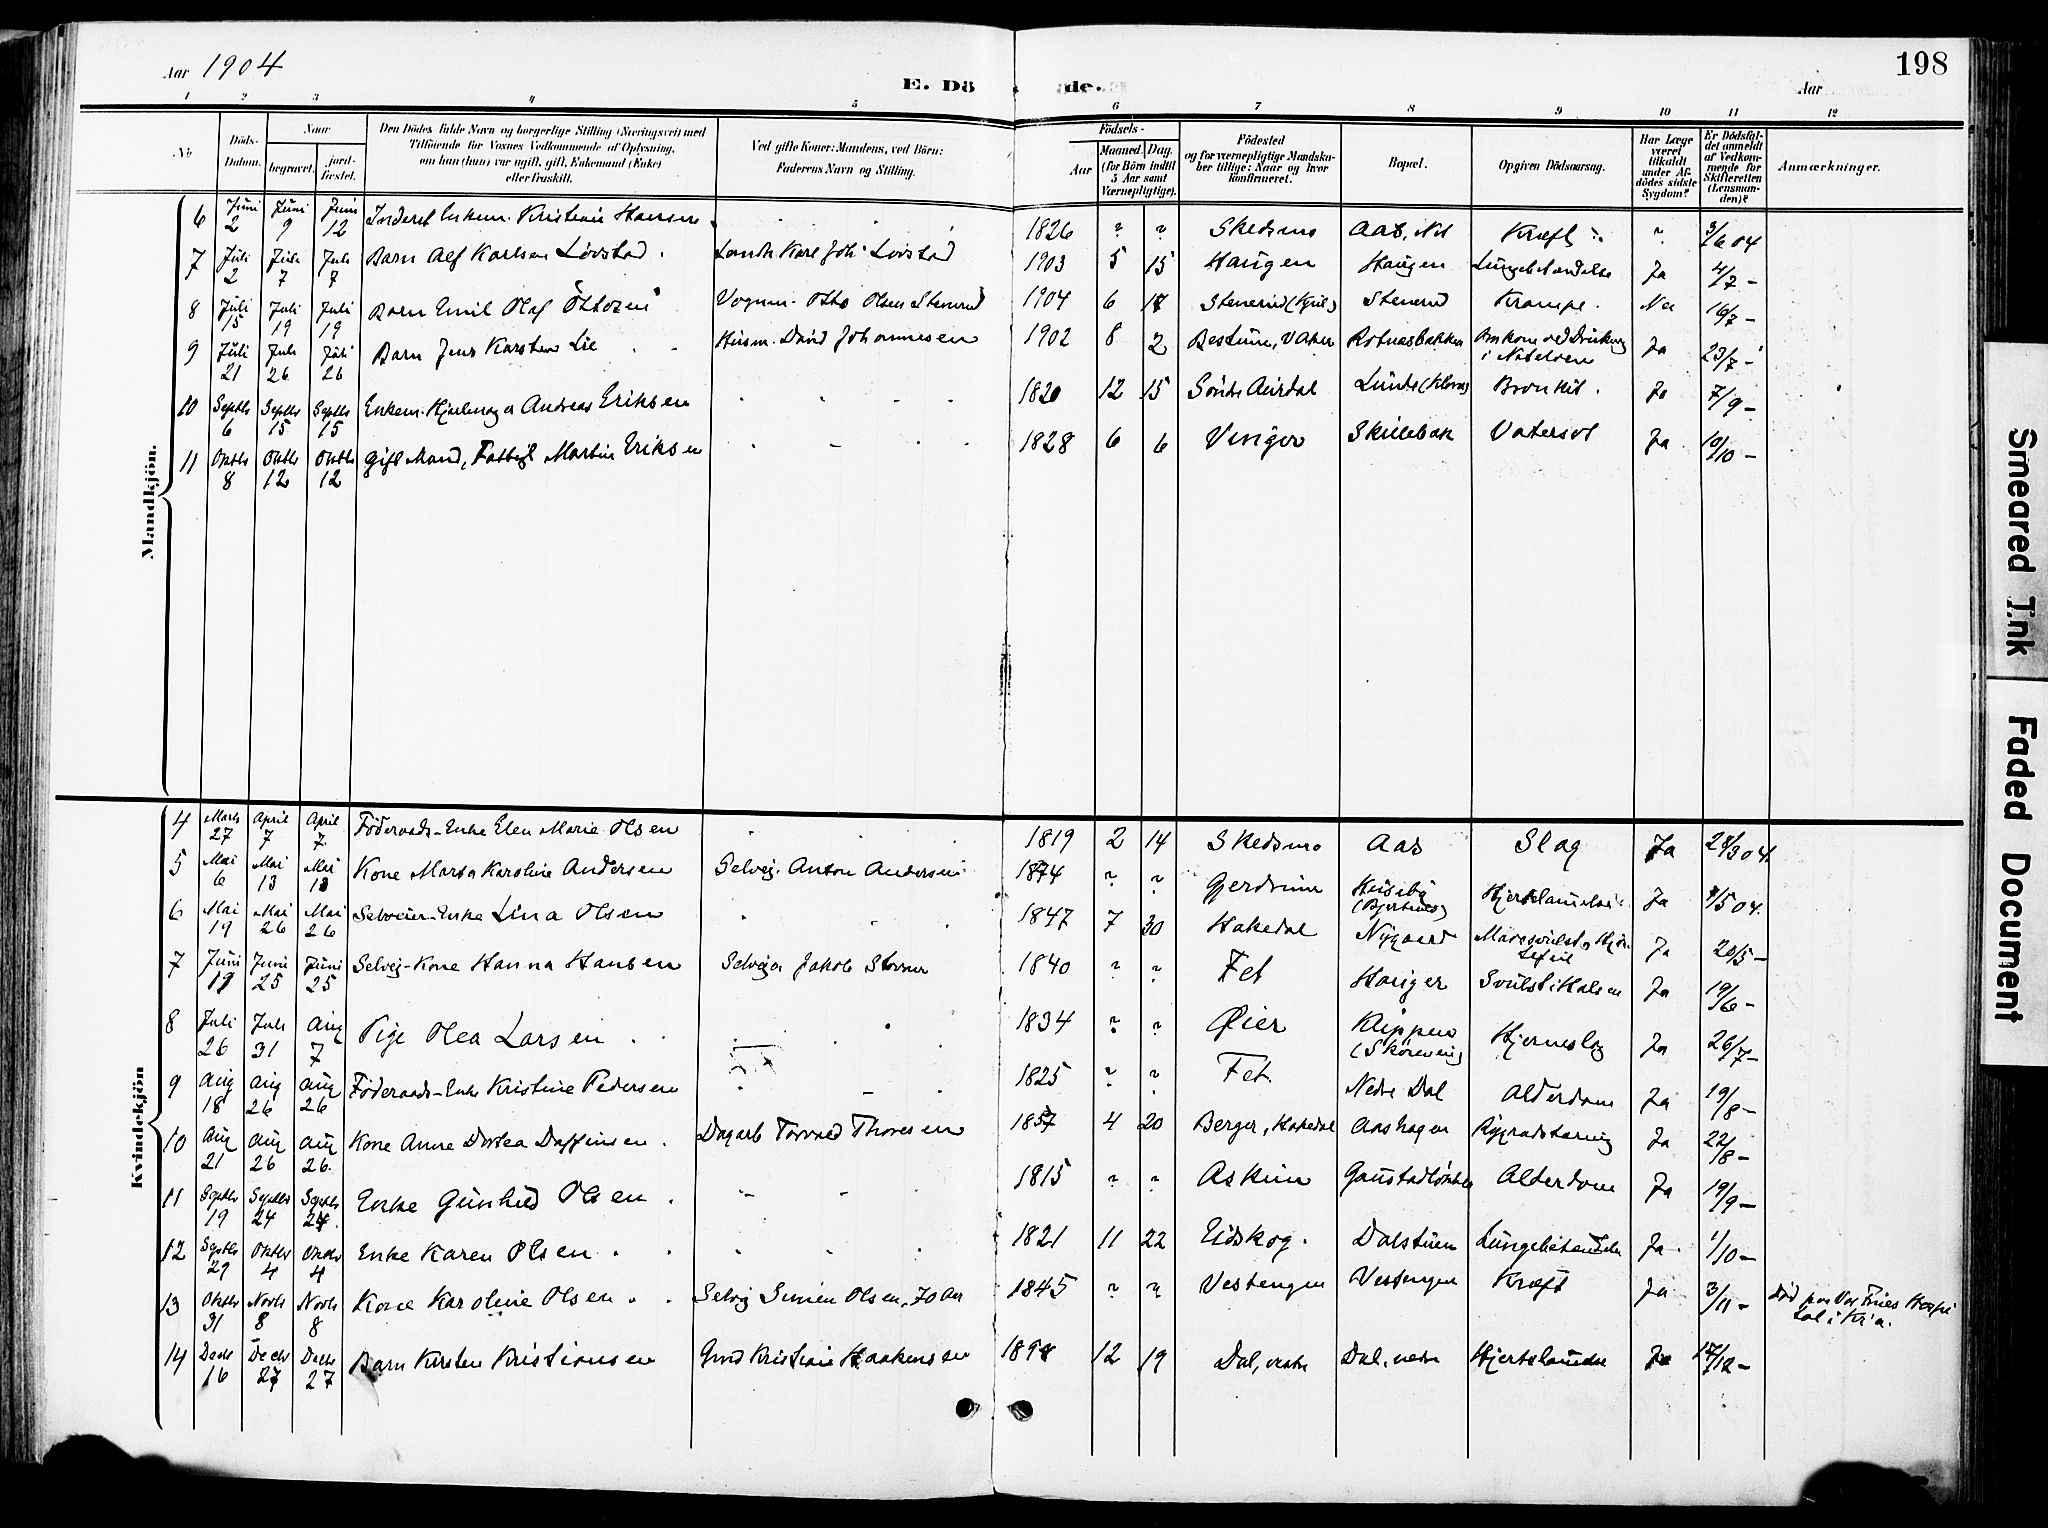 Aar 1904
E. Dö de.
Aar
198
1 2 3 4 5 6 7 8 9 10 11 12
No
Döds-Datum.
Naar
begravet.
jord-fæstet.
Den Dödes fulde Navn og borgerlige Stilling (Næringsvei) med
Tilföiende for Voxnes Vedkommende af Oplysning,
om han (hun) var ugift, gift, Enkemand (Enke)
eller fraskilt.
Ved gifte Koner: Mandens, ved Börn:
Faderens Navn og Stilling.
Födsels-
Aar
Maaned. Dag.
(for Börn indtil
5 Aar samt
Værnepligtige).
Födested
og for værnepligtige Mandska-
ber tillige: Naar og hvor
konfirmeret.
Bopæl.
Opgiven Dödsaarsag.
Har Læge
været
tilkaldt
under Af-
dödes sidste
Sygdom?
Er Dödsfal-
det anmeldt
af Vedkom-
mende for
Skifteretten
(Lensman-
den)?
Anmærkninger.
Mandkjön.
6 Juni 2 Juni 9 Juni 12 Inderst Enkem. Kristian Hansen 1826 ? ? Skedsmo Aas, Nit Kræft ? 3/6 04
7 Juli 2 Juli 7 Juli 7 Barn Alf Karlsen Lövstad Landh. Karl Joh. Lövstad 1903 5 15 Haugen Haugen Lungebetændelse Ja 4/7 -
8 Juli 15 Juli 19 Juli 19 Barn Emil Olaf Ottosen Vognm. Otto Olsen Stenrud 1904 6 17 Stenrud Stenrud Krampe. Nei 16/7 -
9 Juli 21 Juli 26 Juli 26 Barn Jens Karsten Lie Husm. David Johannesen 1902 8 2 Bestum, V Aker Rotnesbakken Omkom ved Drukning i Nitelven Ja 23/7 -
10 Septbr 6 Septbr 15 Septbr 15 Enkem. Hjulmager Andreas Eriksen 1820 12 15 Söndre Aurdal Lunde Bronkit. Ja 7/9 -
11 Oktbr 8 Oktbr 12 Oktbr 12 Gift Mand, Fattigl Martin Eriksen 1828 6 6 Vinger Skillebæk Vatersot Ja 10/10 -
Kvindekjön
4 Marts 27 April 7 April 7. Föderaads-Enke Elen Marie Olsen 1819 2 14 Skedsmo Aas Slag Ja 28/3 04.
5 Mai 6 Mai 13 Mai 13 Kone Marta Karoline Andersen Selvej. Anton Andersen 1874 ? ? Gjerdrum Huseby Hjertelammelse Ja 9/5 04.
6 Mai 19 Mai 26 Mai 26 Selveier-Enke Lina Olsen 1847 7 30 Hakedal Nygaard Mavesvulst og Hjertefeil Ja 20/5 -
7 Juni 19 Juni 25 Juni 25 Selvej-Kone Hanna Hansen Selvejer Jakob Stovner 1840 ? ? Fet Hauger Svulst i Halsen Ja 19/6 -
8 Juli 26 Juli 31 Aug 7 Pige Olea Larsen 1834 ? ? Øier Klippen Hjerneslag Ja 26/7 -
9 Aug 18 Aug 26 Aug 26 Föderaads-Enke Kristine Pedersen 1825 ? ? Fet. Nedre Dal Alderdom Ja 19/8 -
10 Aug 21 Aug 26 Aug 26. Kone Anne Dortea Daffinsen Dagarb Torvald Thoresen 1857 4 20 Berger, Hakedal Aashagen Rygradstæring Ja 22/8 -
11 Septbr 19 Septbr 24 Septbr 24. Enke Gunhild Olsen 1815 ? ? Askim Gaustadløkken Alderdom Ja 19/9 -
12 Septbr 29 Oktbr 4 Oktbr 4 Enke Karen Olsen 1821 11 22 Eidskog. Dalstuen Lungebetændelse Ja 1/10 -
13 Oktbr 31 Novbr 8 Novbr 8 Kone Karoline Olsen Selvej Simen Olsen, 70 Aar 1845 ? ? Vestengen Vestengen Kræft Ja 3/11 - Död paa Vor Frues Hospital i Kr'a.
14 Decbr 16 Decbr 27 Decbr 27 Barn Kirsten Kristiansen Gmd Kristian Haakensen 1898 12 19 Dal, nedre Dal, nedre Hjertelammelse Ja 17/12 -
Smeared Ink
Faded Document